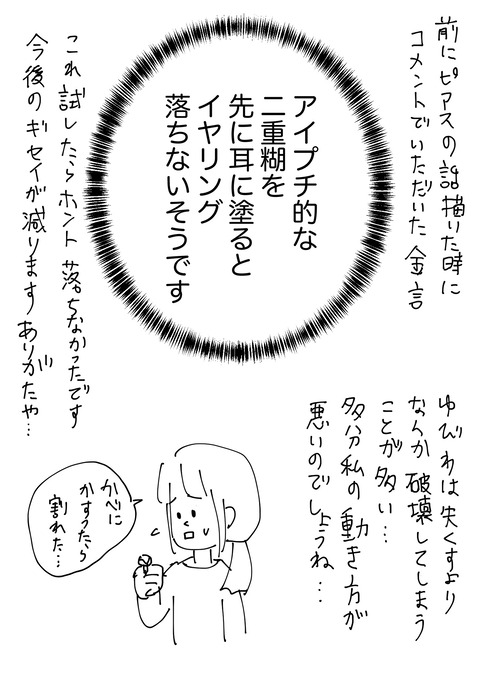 前にピアスの話描いた時に
コメントでいただいた金言
アイプチ的な
二重糊を
先に耳に塗ると
イヤリング
落ちないそうです
これ試したらホント落ちなかったです
今後のギセイが減りますありがたや…
ゆびわは失くすより
なんか破壊してしまう
ことが多い…
多分私の動き方が
悪いのでしょうね…
かべに
かすったら
割れた…